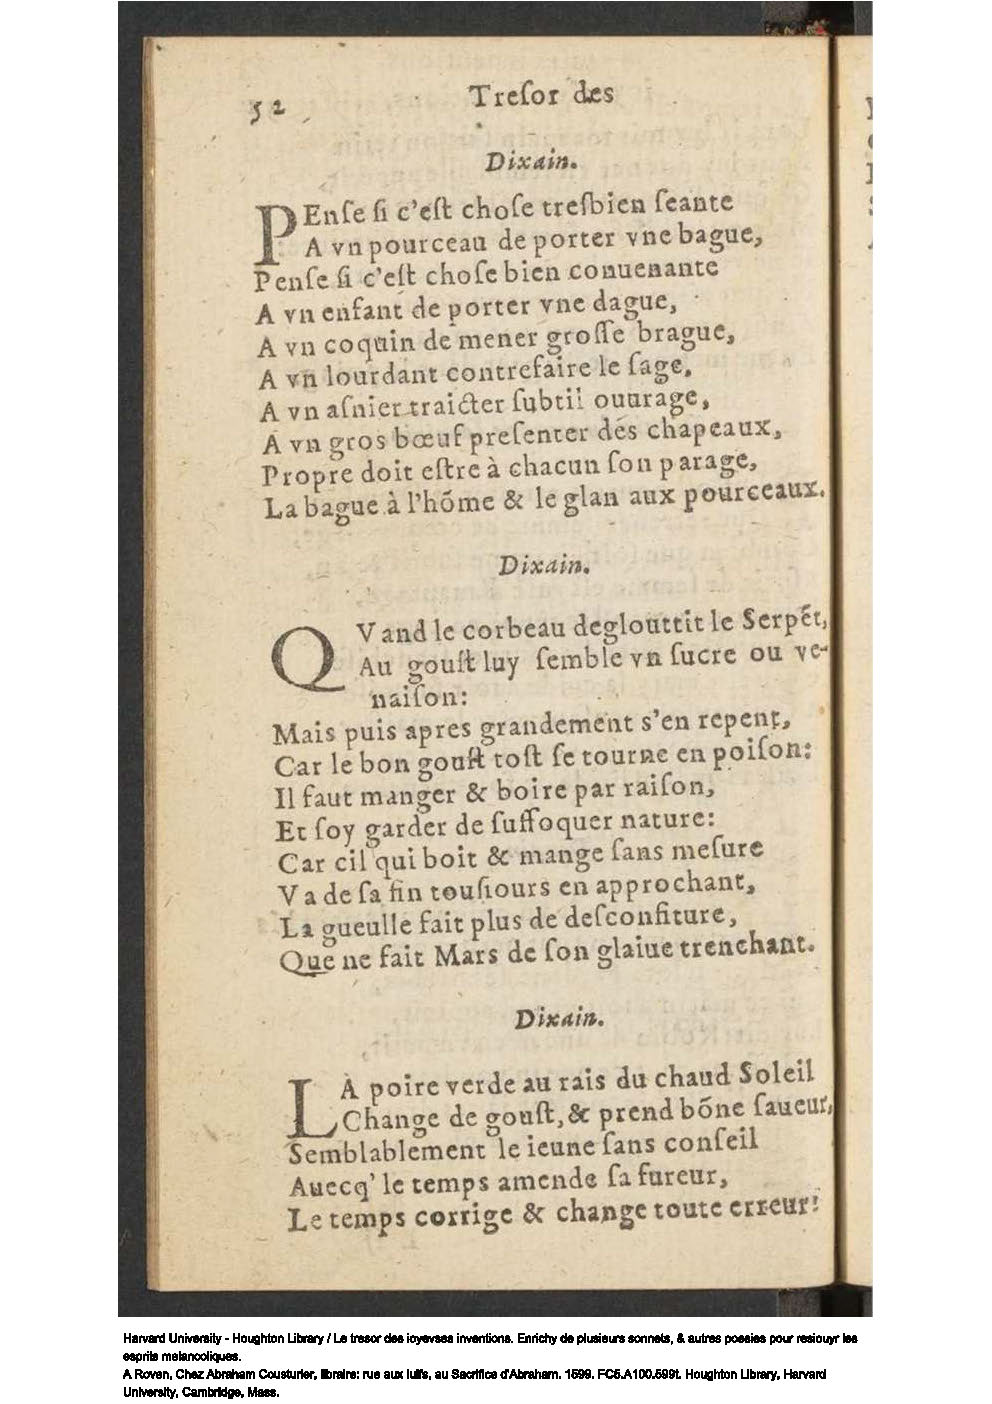 52
Treſor des
Dixain.
PEnſe ſi c'eſt choſe treſbien ſeante
A vn pourceau de porter vne bague,
Penſe ſi c'eſt choſe bien conuenante
A vn enfant de porter vne dague,
A vn coquin de mener groſſe brague,
A vn lourdant contrefaire le ſage,
A vn aſnier traicter ſubtil ouurage,
A vn gros bœuf preſenter des chapeaux,
Propre doit eſtre à chacun ſon parage,
La bague à l'hõme & le glan aux pourceaux.
Dixain.
QVand le corbeau deglouttit le Serpẽt,
Au gouſt luy ſemble vn ſucre ou ve-
naiſon:
Mais puis apres grandement s'en repent,
Car le bon gouſt toſt ſe tourne en poiſon:
Il faut manger & boire par raiſon,
Et ſoy garder de ſuffoquer nature:
Car cil qui boit & mange ſans meſure
Va de ſa fin touſiours en approchant,
La gueulle fait plus de deſconfiture,
Que ne fait Mars de ſon glaiue trenchant.
Dixain.
LA poire verde au rais du chaud Soleil
Change de gouſt, & prend bõne ſaueur,
Semblablement le ieune ſans conſeil
Auecq' le temps amende ſa fureur,
Le temps corrige & change toute erreur:
Harvard University - Houghton Library / Le tresor des ioyevses inventions. Enrichy de plusieurs sonnets, & autres poesies pour resiouyr les
esprits melancoliques.
A Roven, Chez Abraham Cousturier, libraire: rue aux Iuifs, au Sacrifice d'Abraham. 1599. FC5.A100.599t. Houghton Library, Harvard
University, Cambridge, Mass.